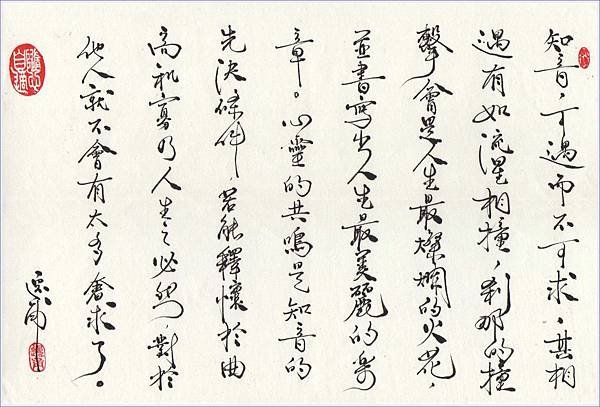 知音，可遇而不可求，其相
遇有如流星相撞，剎那的撞
擊會是人生最燦爛的火花，
並書寫出人生最美麗的樂
章。心靈的共鳴是知音的
先決條件，若能釋懷於曲
高和寡乃人生之必然，對於
他人就不會有太多奢求了。